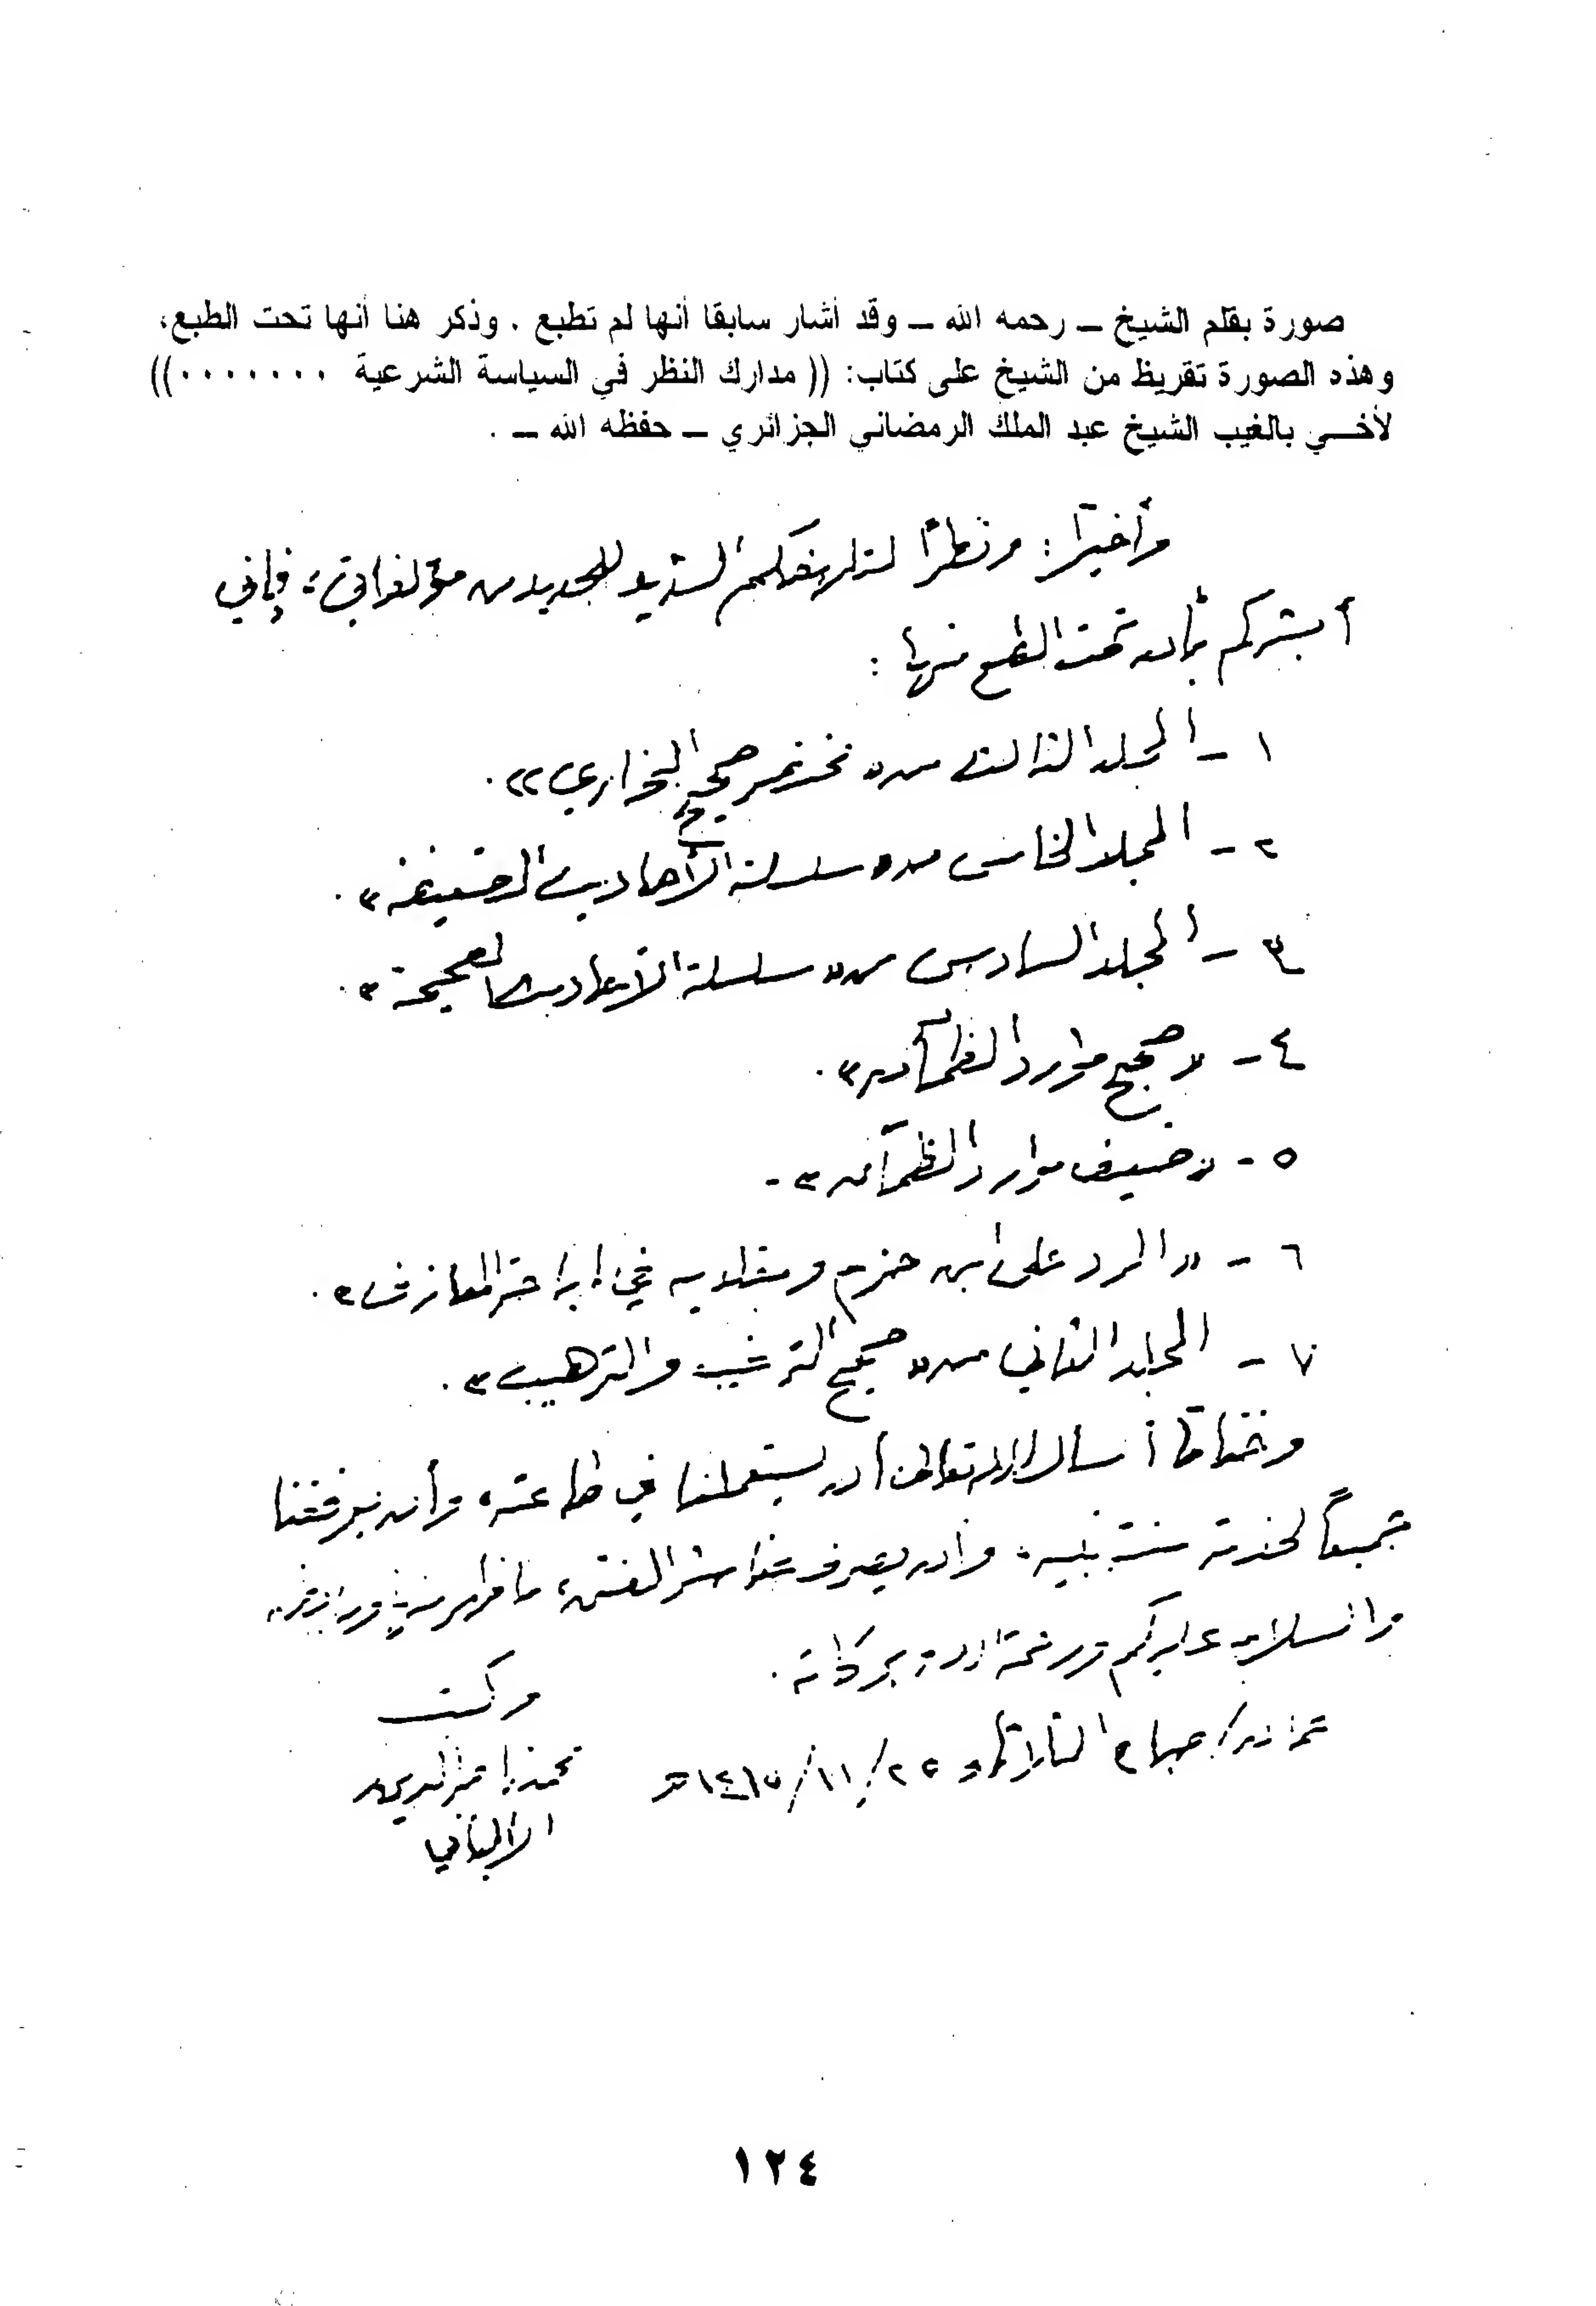 صورة بقلم الشيخ ـ رحمه الله ـ وقد أشار سابقا أنها لم تطبع . وذكر هنا أنها تحت الطبع،
وهذه الصورة تقريظ من الشيخ على كتاب: (( مدارك النظر في السياسة الشرعية ٠٠٠٠٠٠٠))
لأخـي بالغيب الشيخ عبد الملك الرمضاني الجزائري ـ حفظه الله ـ .
وأخيراً: ونظراً لتلهفكم الشديد للجديد من مؤلفاتي، فإني
أبشركم بأن تحت الطبع منها :
١ - المجلد الثالث من « مختصر صحيح البخاري » .
٢ - المجلد الخامس من « سلسلة الأحاديث الضعيفة » .
٣ - المجلد السادس من « سلسلة الأحاديث الصحيحة » .
٤ - « صحيح موارد الظمآن » .
٥ - « ضعيف موارد الظمآن » .
٦ - « الرد على ابن حزم ومقلديه في إباحة المعازف » .
٧ - المجلد الثاني من « صحيح الترغيب والترهيب » .
وختاماً أسأل الله تعالى أن يستعملنا في طاعته، وأن يوفقنا
جميعاً لخدمة سنة نبيه، وأن يصرف عنا شر الفتن، ما ظهر منها وما بطن،
والسلام عليكم ورحمة الله وبركاته .
وكتب
عمان صباح الثلاثاء ٢٥/١١/١٤١٥هـ
محمد ناصر الدين
الألباني
١٢٤